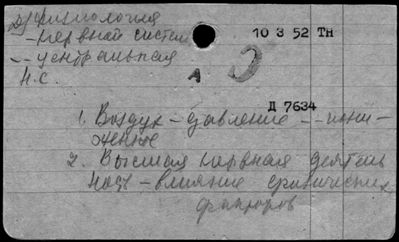 Д) Физиология
- нервной систем 10 3 52 Тн
-- центральная
Н.С. А
Д 7634
1. Воздух - давление -- пони-
жение
2. Высшая нервная деятель
ность - влияние физических
факторов